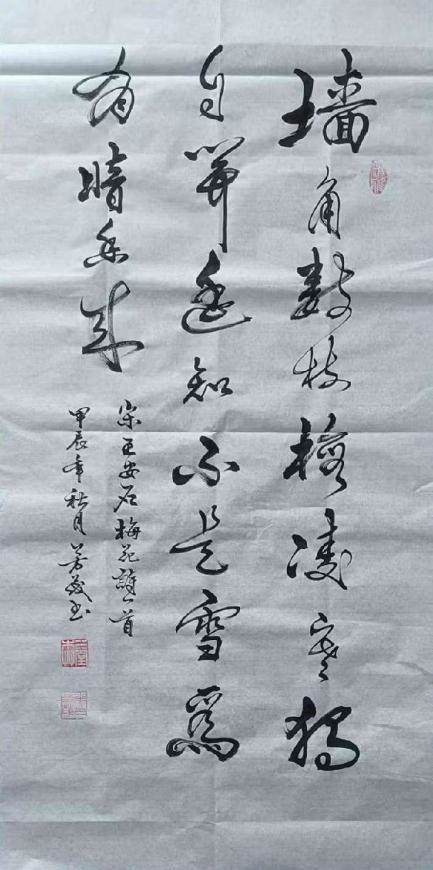 墙角数枝梅凌寒独
自开遥知不是雪为
有暗香来
宋王安石梅花诗一首
甲辰年秋月芳茂书